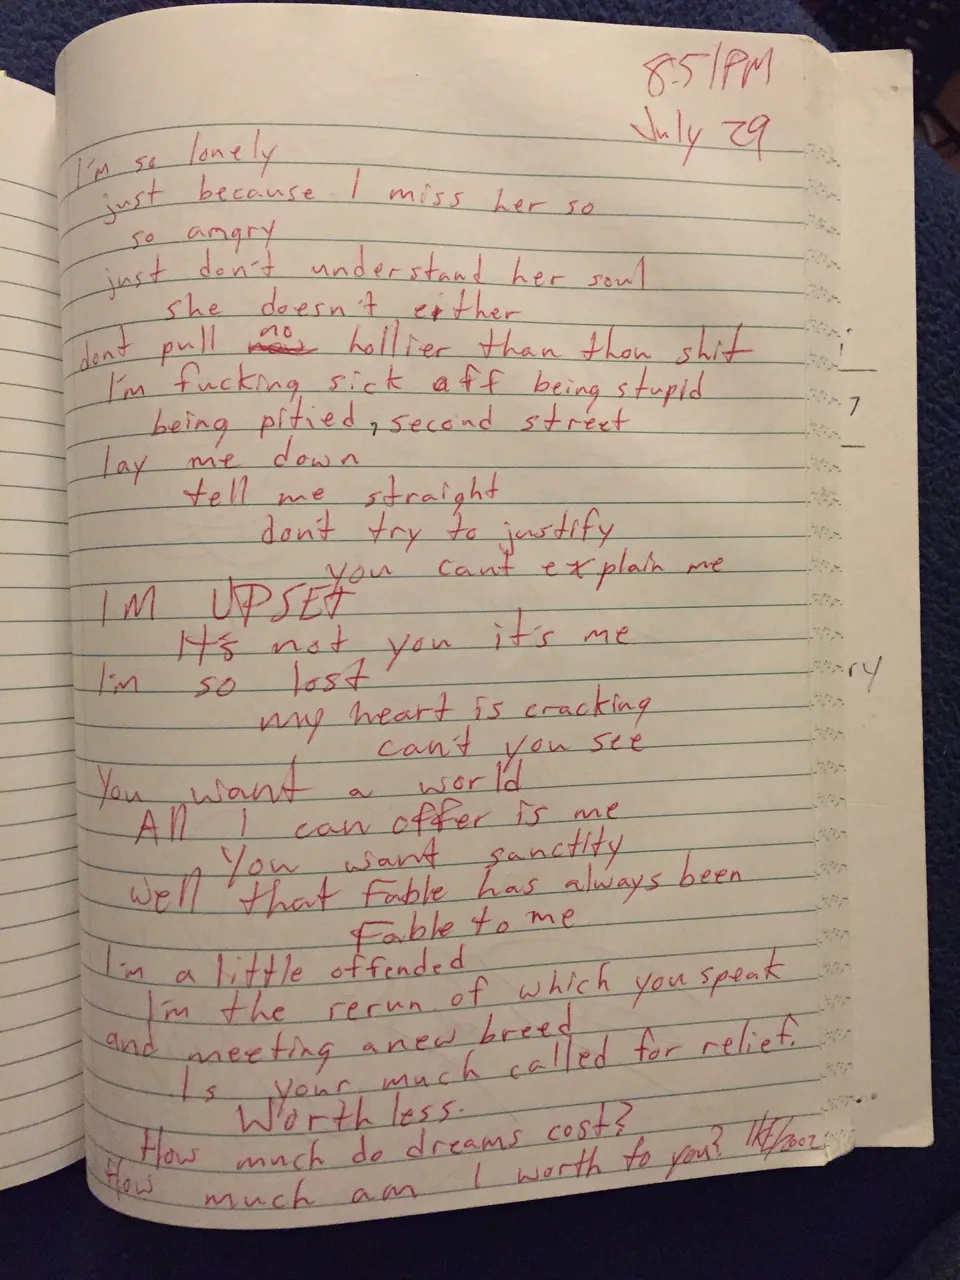 8:51PM
July 29
I'm so lonely
just because I miss her so
so angry
just don't understand her soul
she doesn't either
dont pull no hollier than thou shit
I'm fucking sick off being stupid
being pitied, second street
lay me down
tell me straight
don't try to justify
you cant explain me
IM UPSET
It's not you it's me
I'm so lost
my heart is cracking
can't you see
You want a world
All I can offer is me
You want sanctity
Well that Fable has always been
Fable to me
I'm a little offended
I'm the rerun of which you speak
and meeting a new breed
Is your much called for relief.
Worthless.
How much do dreams cost?
How much am I worth to you?
/2002
ry